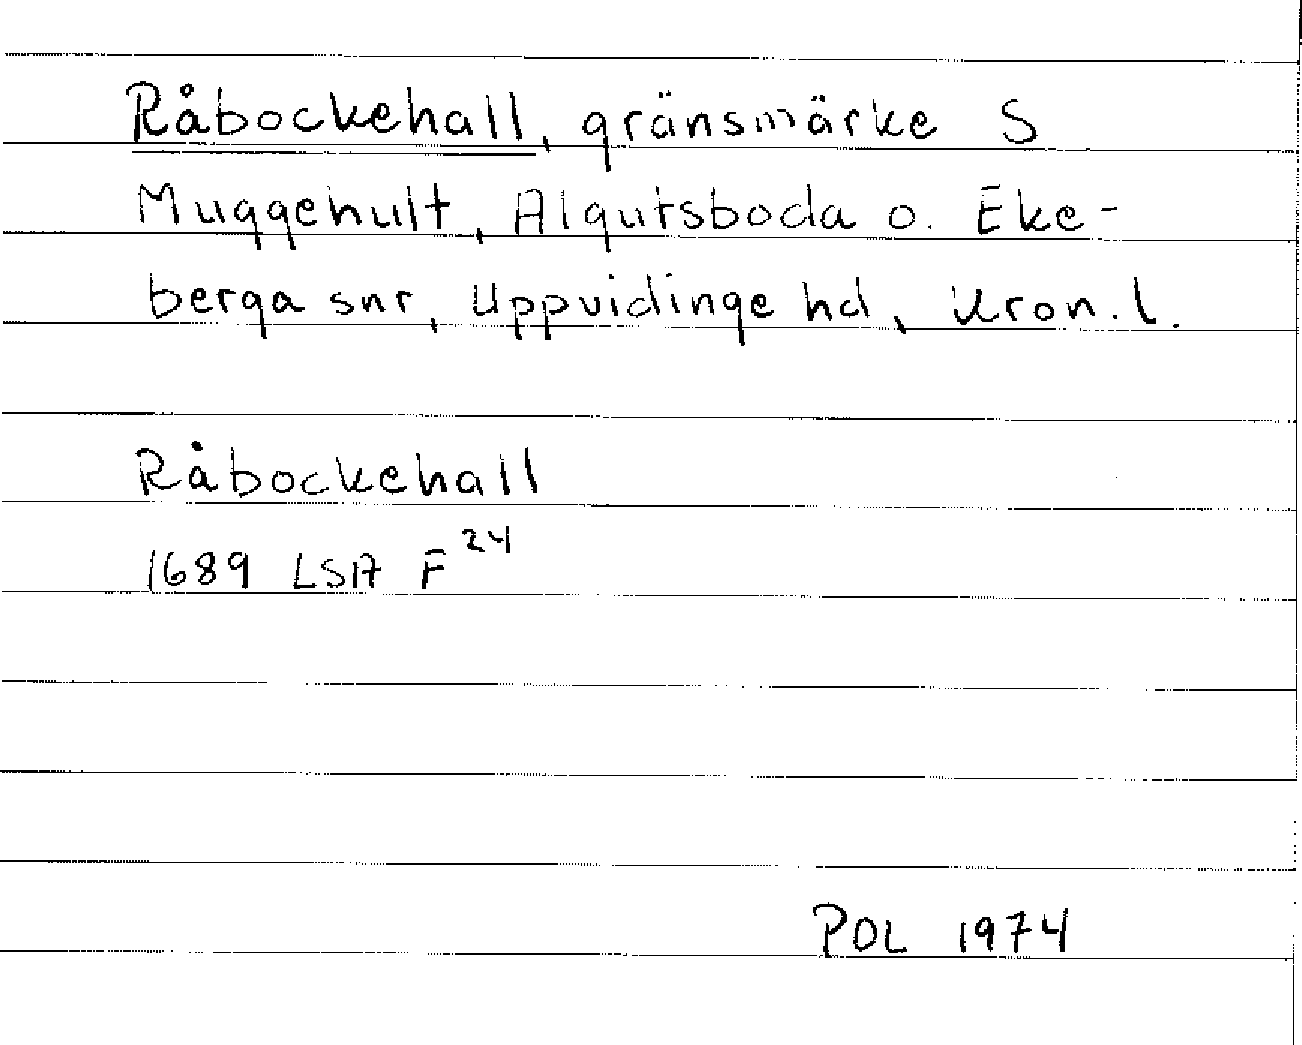 Råbockehall, gränsmärke S
Muggehult, Algutsboda o. Eke-
berga snr, Uppvidinge hd, Kron. l.
Råbockehall
1689 LSA F 24
POL 1974